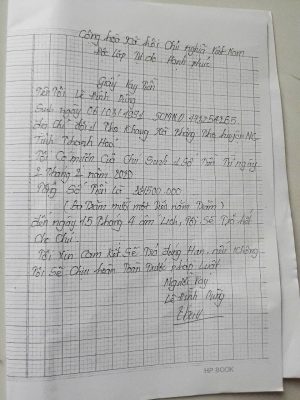 Cộng hòa xã hội Chủ nghĩa Việt Nam
Độc Lập Tự do Hạnh phúc
Giấy Vay Tiền
Tên Tôi Lê Đình Dũng
Sinh ngày 06/03/1994 SCMND
Địa Chỉ xã huyện NC
Tỉnh Thanh Hoá
Tôi Có mượn Của Chú Sinh Số Tiền Từ ngày
2 Tháng 2 năm 2020
Tổng Số Tiền Là 241500.000
mươi một Triệu năm Trăm)
đến ngày 15 Tháng 4 âm Lịch, Tôi Sẽ Trả hết
Cho Chú
Tôi xin Cam Kết Sẽ Trả đúng Hạn, nếu Không
Tôi Sẽ Chịu hoàn Toàn Trước pháp Luật
Người Vay
Lê Đình Dũng
HP BOOK